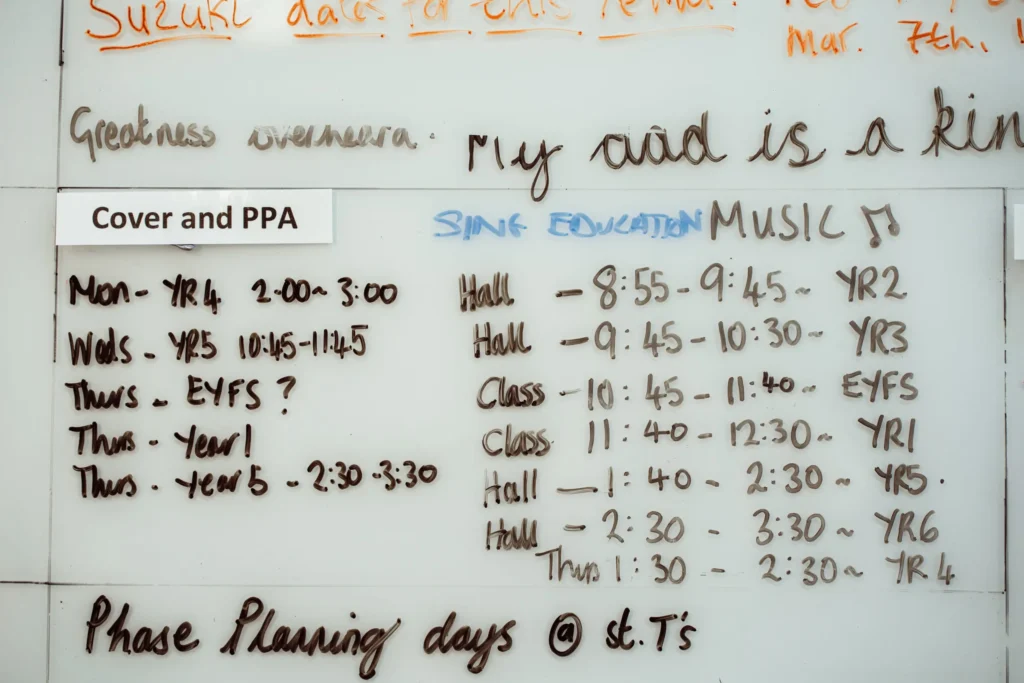 Suzuki dates for this term:
Mar. 7th,
Greatness overheard. My dad is a kin
Cover and PPA
SING EDUCATION MUSIC
Mon - YR4 2.00 ~ 3:00
Weds - YR5 10:45-11:45
Thurs - EYFS ?
Thurs - Year 1
Thurs - Year 5 - 2:30 - 3:30
Hall - 8:55 - 9:45 ~ YR2
Hall - 9:45 - 10:30 ~ YR3
Class - 10:45 - 11:40 ~ EYFS
Class 11:40 - 12:30 ~ YR1
Hall - 1:40 - 2:30 ~ YR5.
Hall - 2:30 - 3:30 ~ YR6
Thurs 1:30 - 2:30 ~ YR4
Phase Planning days @ st.T's